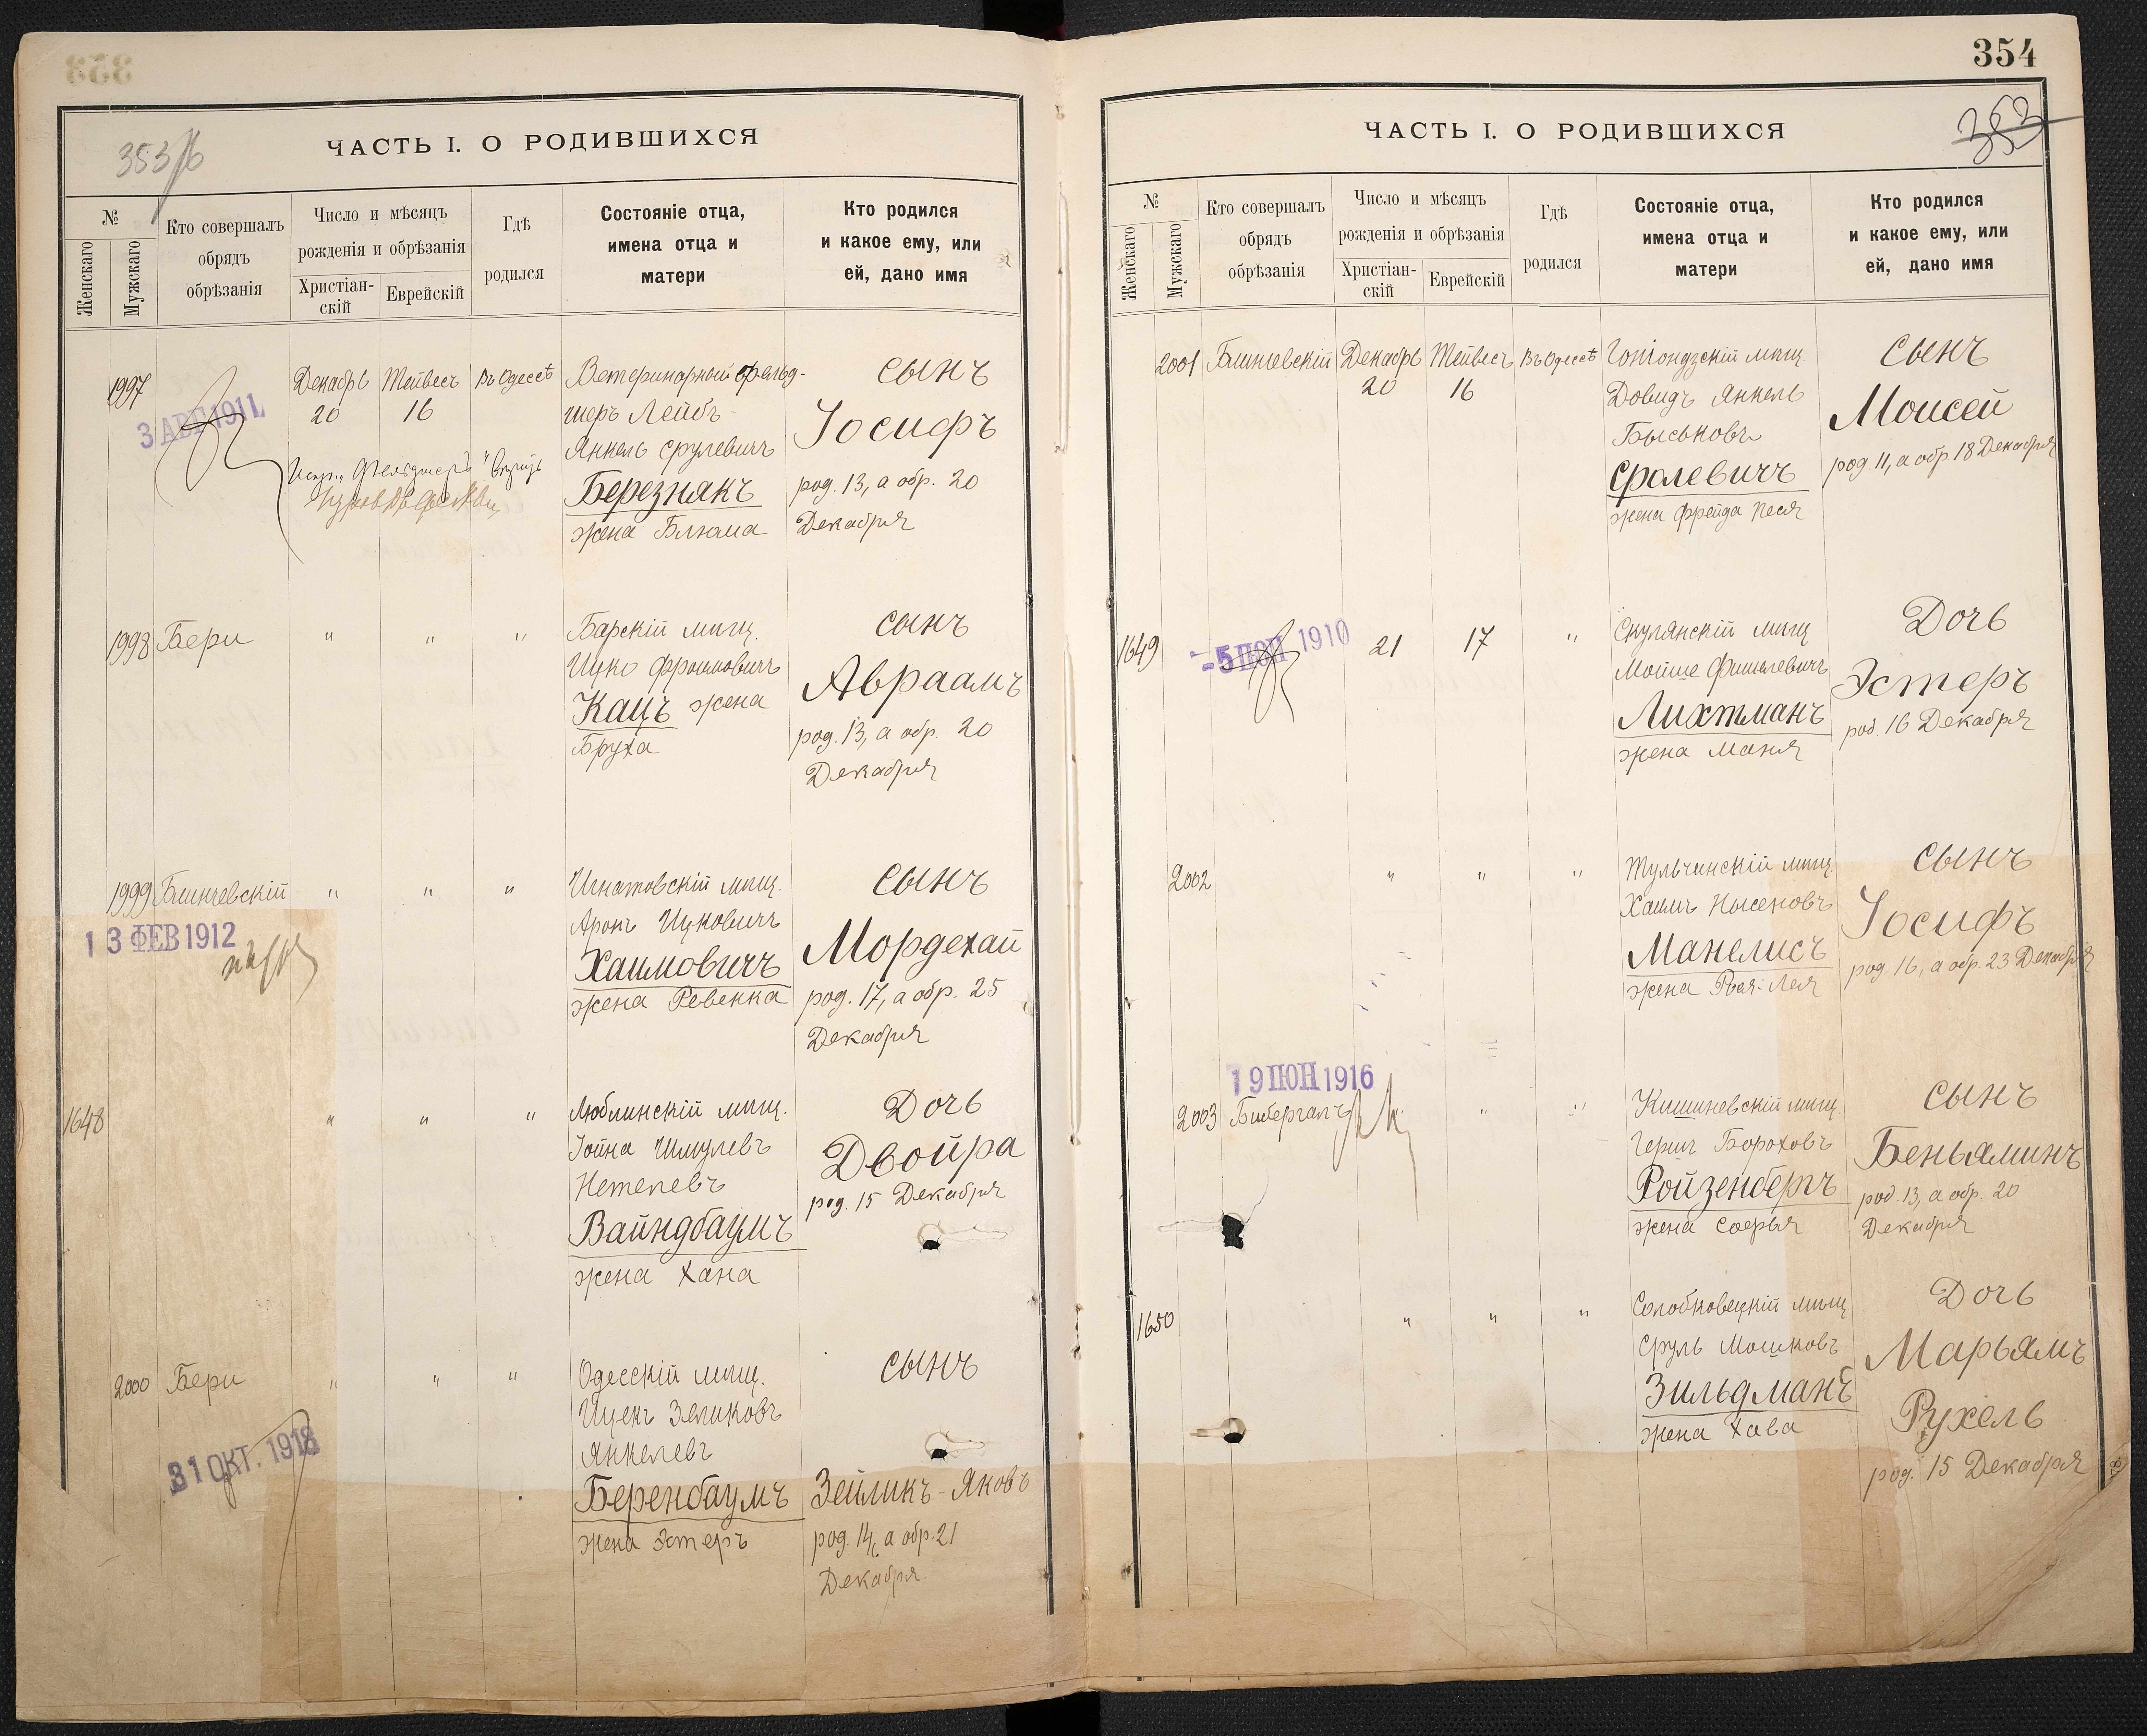 354
353
353/б
ЧАСТЬ I. О РОДИВШИХСЯ
№
Женскаго
Мужскаго
Кто совершалъ
обрядъ
обрѣзанія
Число и мѣсяцъ
рожденія и обрѣзанія
Христіан-
скій
Еврейскій
Гдѣ
родился
Состояніе отца,
имена отца и
матери
Кто родился
и какое ему, или
ей, дано имя
1997
3 АВГ 1911
Декабрь
20
Тейвесъ
16
Въ Одессѣ
Ветеринарный фельд-
шеръ Лейбъ-
Янкель Срулевичъ
Березнякъ
жена Блюма
сынъ
Іосифъ
род. 13, а обр. 20
Декабря
1998 Бери " " "
Барскій мѣщ.
Ицко Фроимовичъ
Кацъ жена
Бруха
сынъ
Авраамъ
род. 13, а обр. 20
Декабря
1999 " " "
13 ФЕВ 1912
Игнатовскій мѣщ.
Аронъ Ицковичъ
Хаимовичъ
жена Ревекка
сынъ
Мордехай
род. 17, а обр. 25
Декабря
1648 " " "
Люблинскій мѣщ.
Іойна Шмулевъ
Вайндбаумъ
жена Хана
Дочь
Двойра
род. 15 Декабря
2000 Бери " " "
31 ОКТ. 1918
Одесскій мѣщ.
Ицекъ Зеликовъ
Янкелевъ
Беренбаумъ
жена Эстеръ
сынъ
Зейликъ-Яковъ
род. 14, а обр. 21
Декабря
ЧАСТЬ I. О РОДИВШИХСЯ
№
Женскаго
Мужскаго
Кто совершалъ
обрядъ
обрѣзанія
Число и мѣсяцъ
рожденія и обрѣзанія
Христіан-
скій
Еврейскій
Гдѣ
родился
Состояніе отца,
имена отца и
матери
Кто родился
и какое ему, или
ей, дано имя
2001
Декабрь
20
Тейвесъ
16
Въ Одессѣ
Гоніондзскій мѣщ.
Довидъ Янкель
Беськовъ
Сролевичъ
жена Фрейда Песя
сынъ
Моисей
род. 11, а обр. 18 Декабря
1649
-5 ІЮН 1910
21 17 "
Скулянскій мѣщ.
Мойше Фишелевичъ
Лихтманъ
жена Маня
Дочь
Эстеръ
род. 16 Декабря
2002 " " "
Тульчинскій мѣщ.
Хаимъ Нысеновъ
Манелисъ
жена Роза-Лея
сынъ
Іосифъ
род. 16, а обр. 23 Декабря
19 ІЮН 1916
2003 Бибергалъ " "
Кишиневскій мѣщ.
Гершъ Бороховъ
Ройзенбергъ
жена Софья
сынъ
Беньяминъ
род. 13, а обр. 20
Декабря
1650 " " "
Солобковецкій мѣщ.
Сруль Мошковъ
Зильдманъ
жена Хава
Дочь
Марьямъ
Рухель
род. 15 Декабря